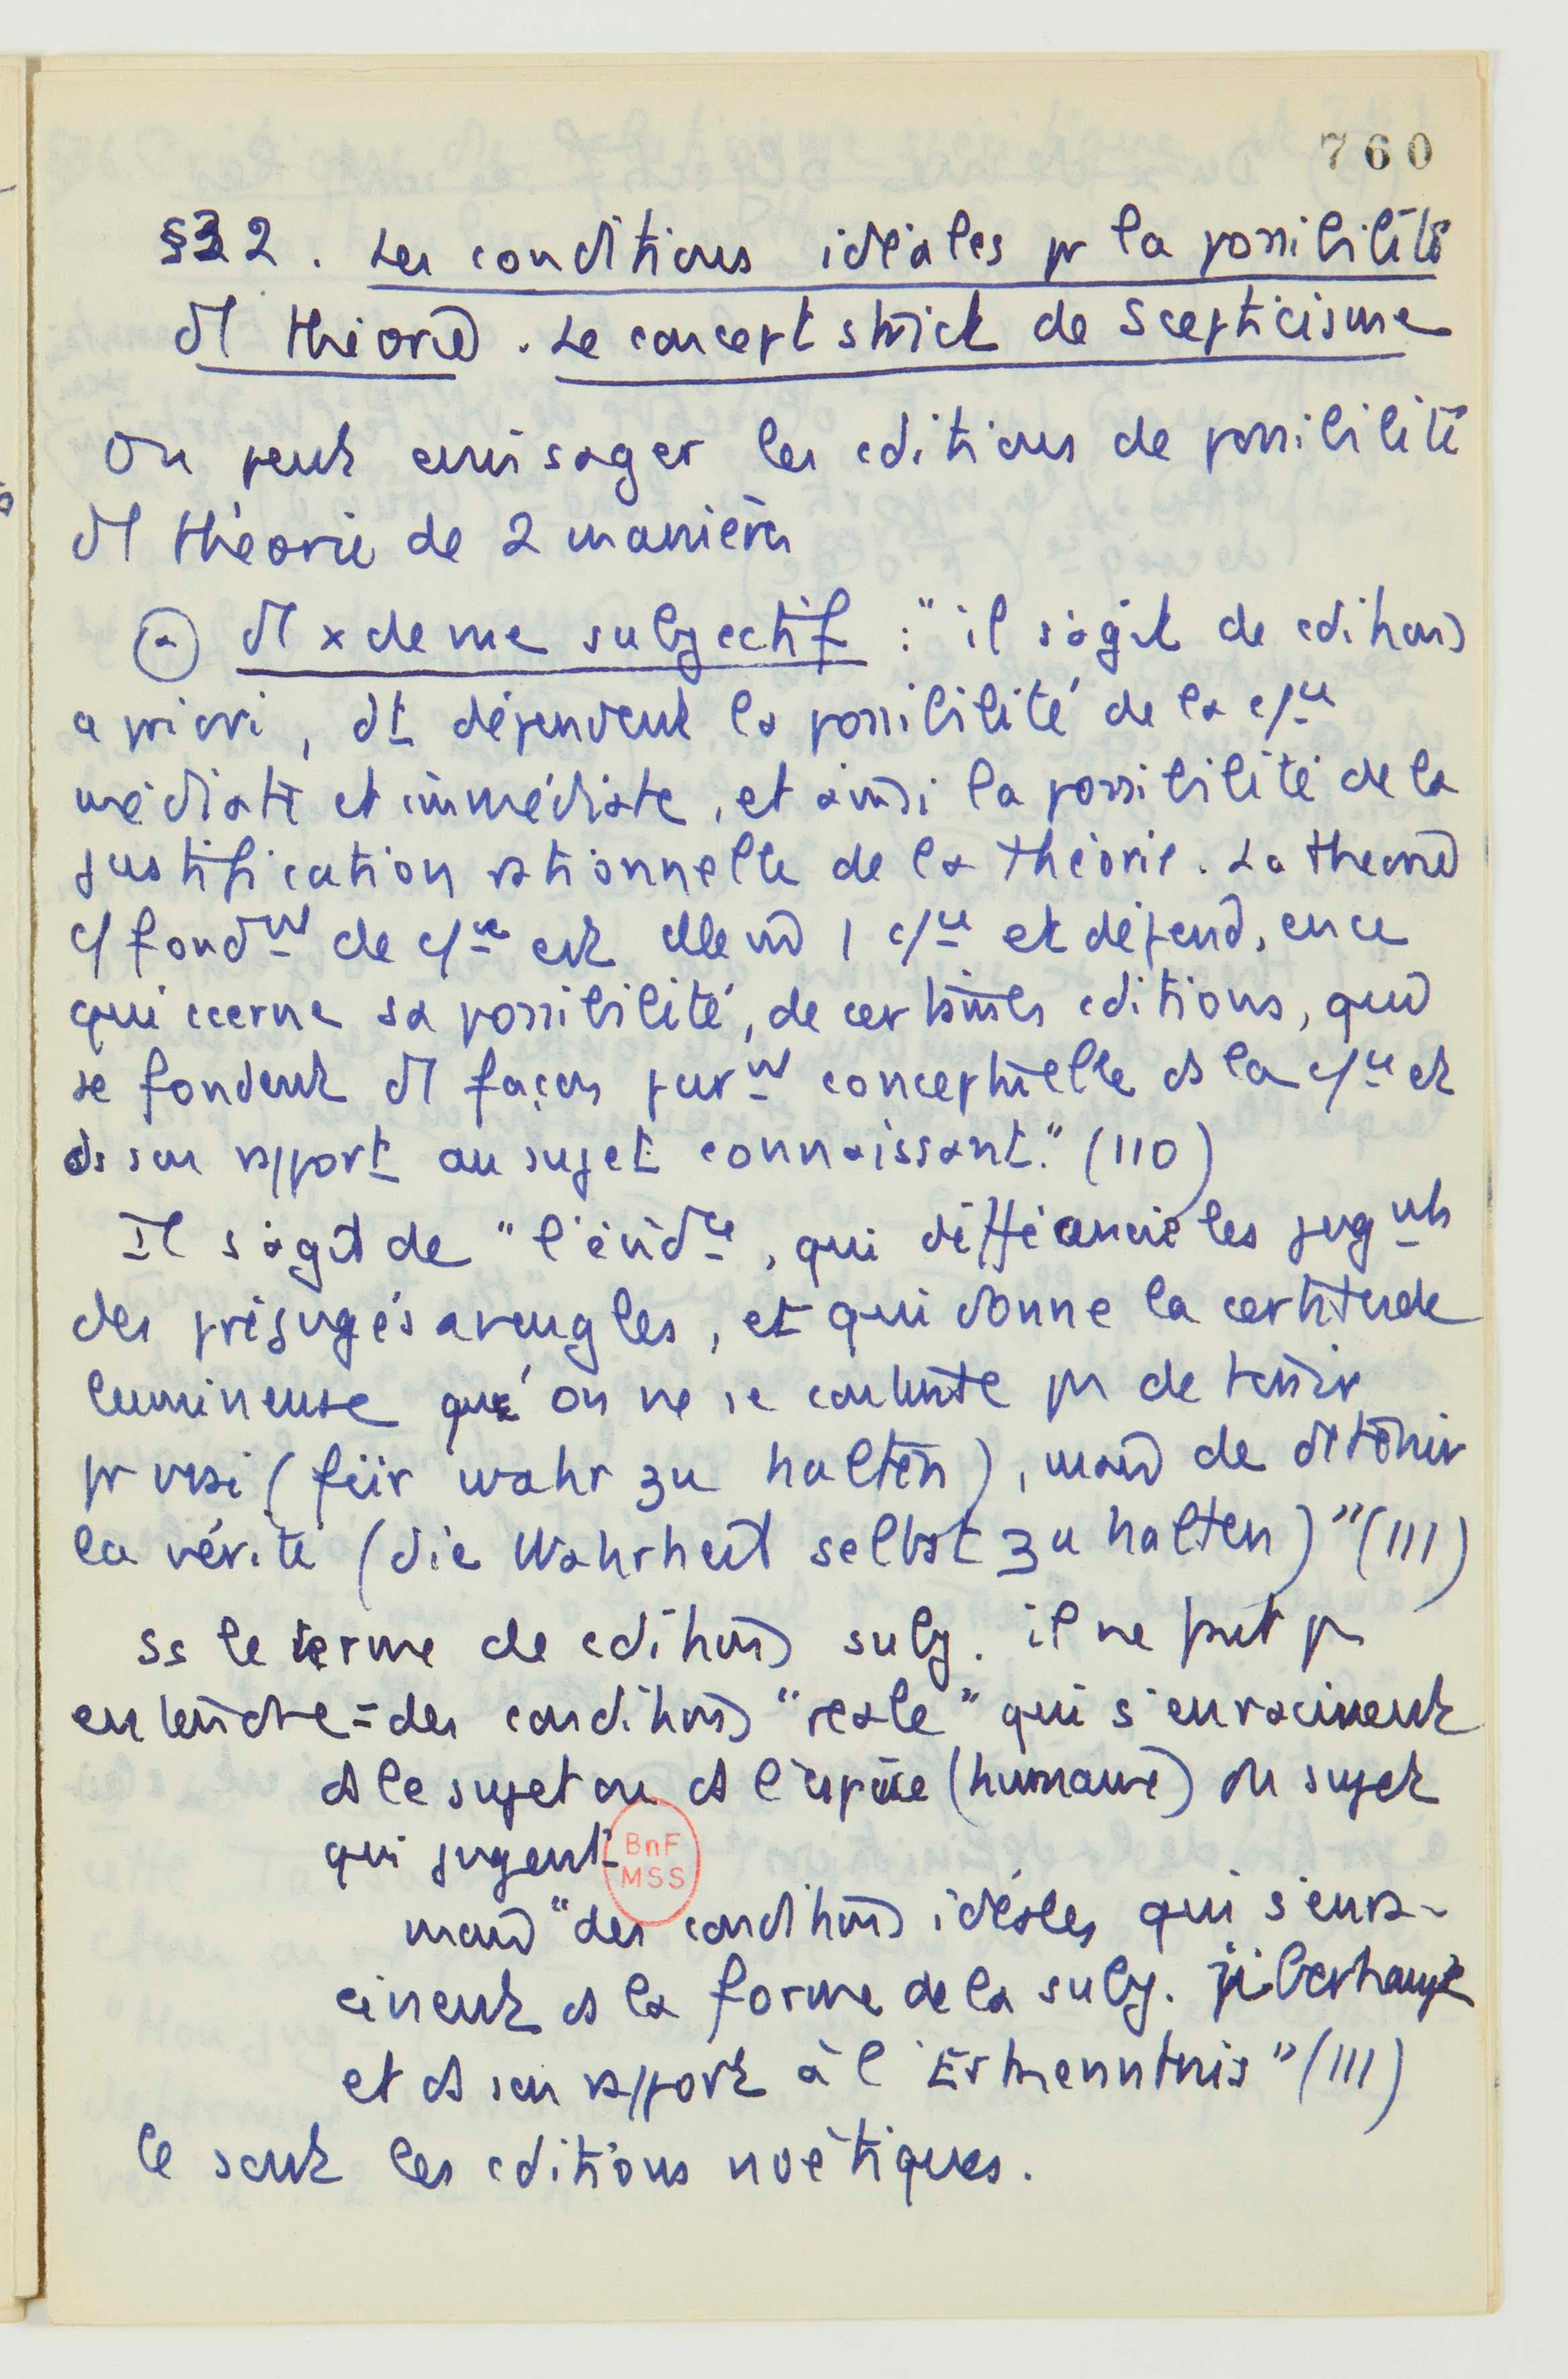 760
§32. Les conditions idéales pr la possibilité
d'1 théorie. Le concept strict de Scepticisme
On peut envisager les cditions de possibilité
d'1 théorie de 2 manières
(a) d'1 x de vue subjectif : "il s'agit de cditions
a priori, dt dépendent la possibilité de la c/ce
médiate et immédiate, et ainsi la possibilité de la
justification rationnelle de la théorie. La théorie
c/ fondmt de c/ce est elle m 1 c/ce et dépend, en ce
qui ccerne sa possibilité, de certaines cditions, qui
se fondent d'1 façon purmt conceptuelle ds la c/ce et
ds son rapport au sujet connaissant." (110)
Il s'agit de "l'évidce, qui différencie les jugmts
des préjugés aveugles, et qui donne la certitude
lumineuse qu'on ne se contente ps de tenir
pr vrai (für wahr zu halten), mais de détenir
la vérité (die Wahrheit selbst zu halten)" (111)
Ss le terme de cditions subj. il ne faut ps
entendre = des conditions "reale" qui s'enracinent
ds le sujet ou ds l'espèce (humaine) du sujet
qui jugent
BnF
MSS
mais "des conditions idéales qui s'enra-
cinent ds la forme de la subj. überhaupt
et ds son rapport à l'Erkenntnis" (111)
Ce sont les cditions noétiques.